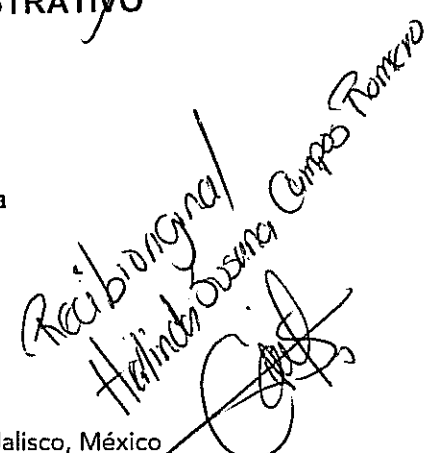 STRATIVO
a
Recibi original
Susana Campos Romero
Jalisco, México